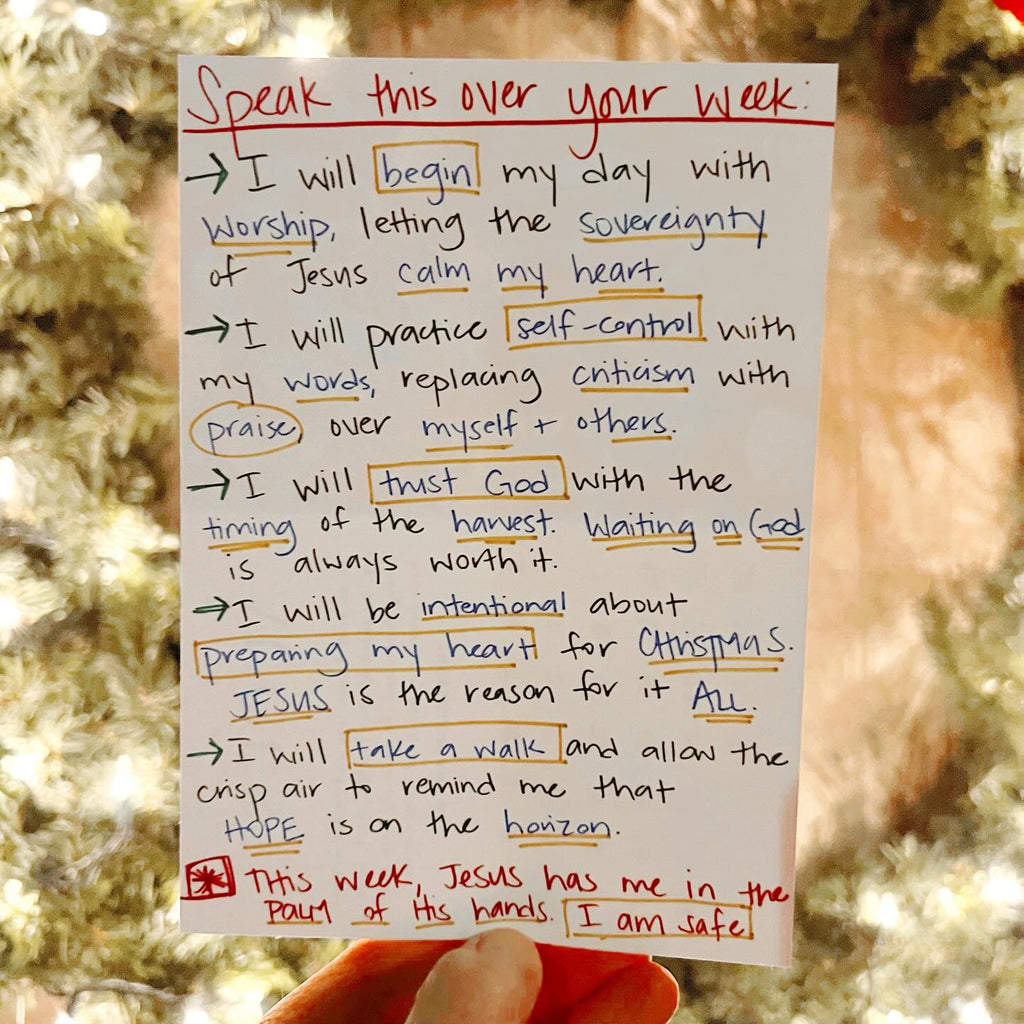 Speak this over your week:
→ I will begin my day with
worship, letting the sovereignty
of Jesus calm my heart.
→ I will practice self-control with
my words, replacing criticism with
praise, over myself + others.
→ I will trust God with the
timing of the harvest. Waiting on God
is always worth it.
→ I will be intentional about
preparing my heart for CHRISTMAS.
JESUS is the reason for it ALL.
→ I will take a walk and allow the
crisp air to remind me that
HOPE is on the horizon.
This week, Jesus has me in the
palm of His hands. I am safe